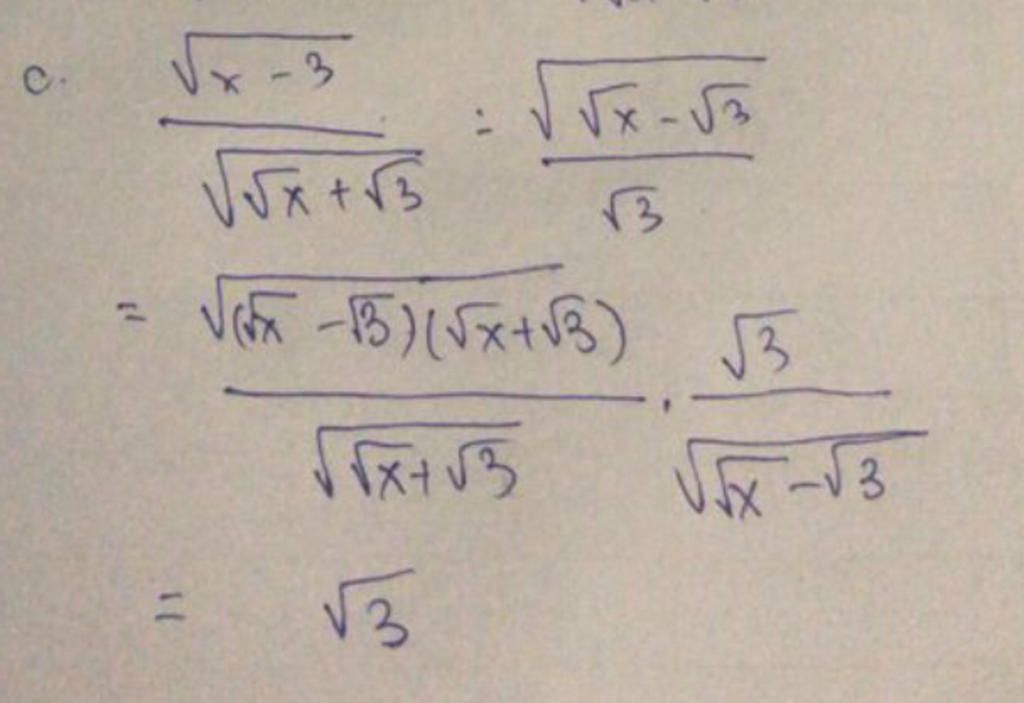 c. √(x - 3) / √(√x + √3) : √(√x - √3) / √3
= √((√x - √3)(√x + √3)) / √(√x + √3) · √3 / √(√x - √3)
= √3